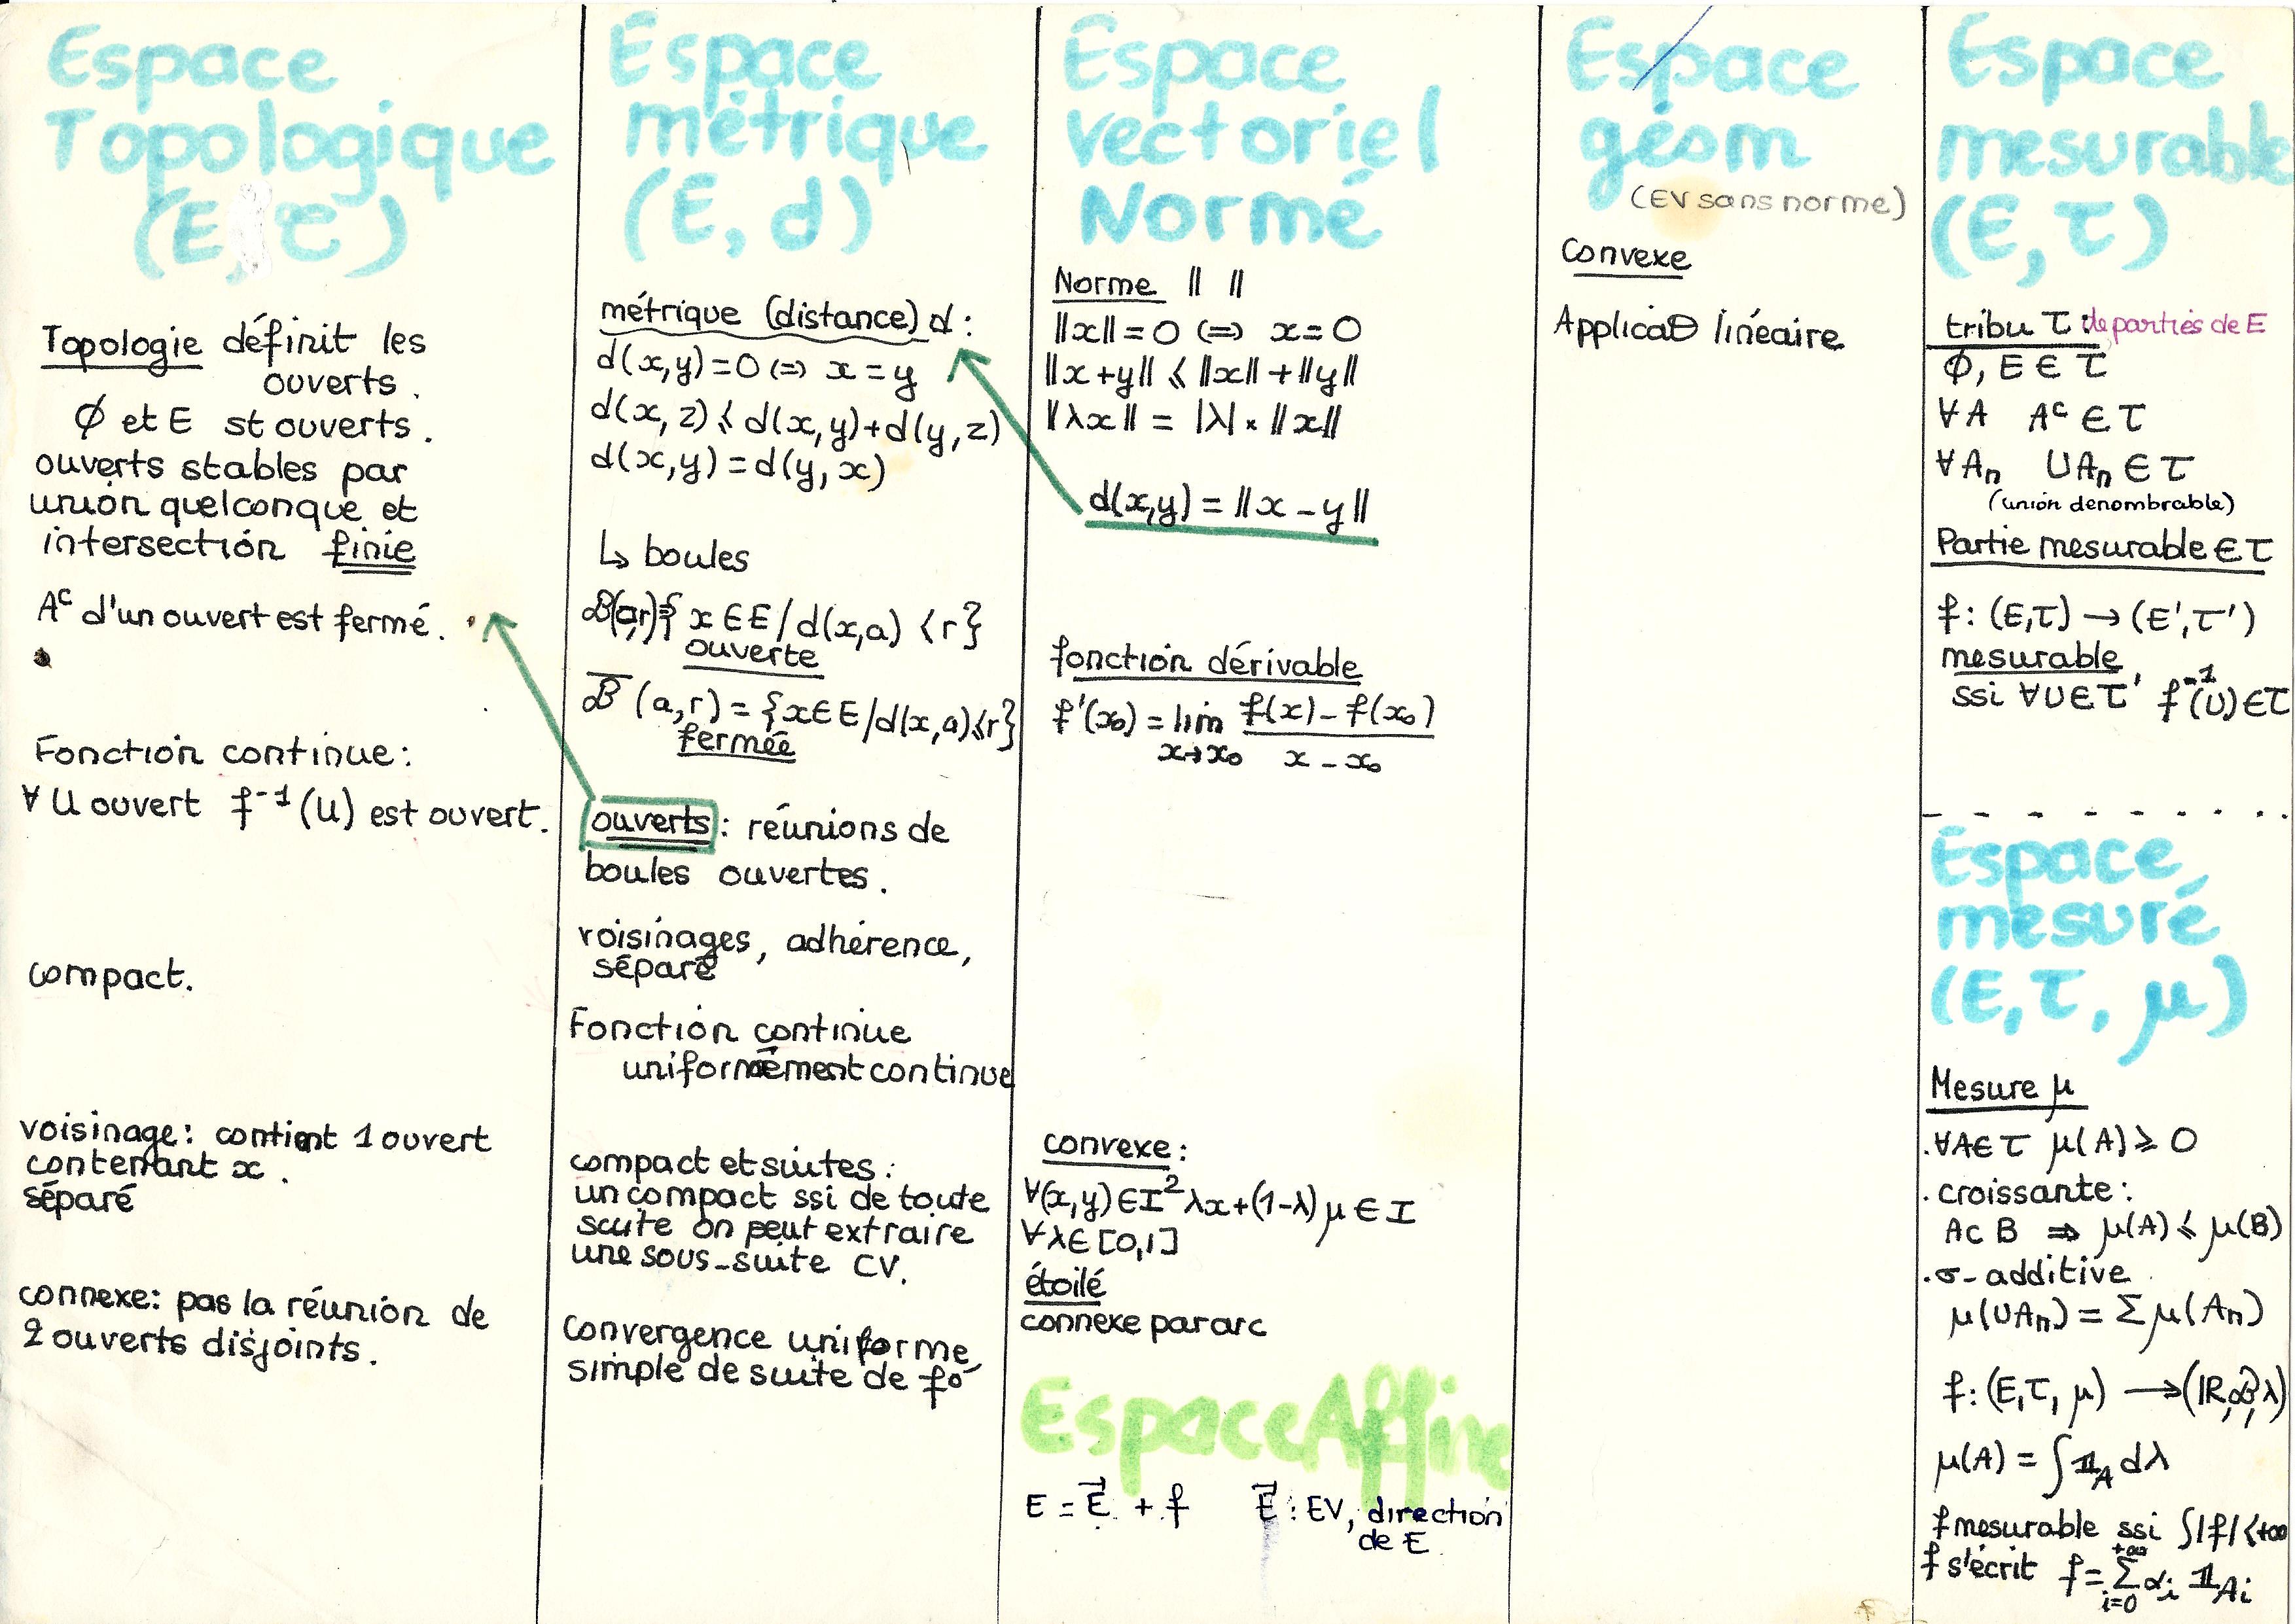 Espace
Topologique
(E, τ)
Topologie définit les
ouverts.
Ø et E st ouverts.
ouverts stables par
union quelconque et
intersection finie
Aᶜ d'un ouvert est fermé.
Fonction continue :
∀ U ouvert f⁻¹(U) est ouvert.
compact.
voisinage : contient 1 ouvert
contenant x.
séparé
connexe : pas la réunion de
2 ouverts disjoints.
Espace
métrique
(E, d)
métrique (distance) d :
d(x,y) = 0 ⟺ x = y
d(x,z) ≤ d(x,y) + d(y,z)
d(x,y) = d(y,x)
↳ boules
B(a,r)={ x ∈ E / d(x,a) < r }
ouverte
B̅ (a,r) = {x ∈ E / d(x,a) ≤ r}
fermée
ouverts : réunions de
boules ouvertes.
voisinages, adhérence,
séparé
Fonction continue
uniformément continue
compact et suites :
un compact ssi de toute
suite on peut extraire
une sous-suite CV.
Convergence uniforme,
simple de suite de fº
Espace
vectoriel
Normé
Norme || ||
||x|| = 0 ⟺ x = 0
||x+y|| ≤ ||x|| + ||y||
||λx|| = |λ| × ||x||
d(x,y) = ||x - y||
fonction dérivable
f'(x₀) = lim f(x) - f(x₀)
x→x₀ x - x₀
convexe :
∀(x,y) ∈ I² λx + (1-λ) μ ∈ I
∀λ ∈ [0,1]
étoilé
connexe par arc
Espace Affine
E = E⃗ + f E⃗ : EV, direction
de E
Espace
géom
(EV sans norme)
Convexe
Applicatθ linéaire
Espace
mesurable
(E, τ)
tribu τ : de parties de E
Ø, E ∈ τ
∀ A Aᶜ ∈ τ
∀ Aₙ ∪Aₙ ∈ τ
(union dénombrable)
Partie mesurable ∈ τ
f : (E,τ) → (E',τ')
mesurable
ssi ∀U ∈ τ' f⁻¹(U) ∈ τ
Espace
mesuré
(E, τ, μ)
Mesure μ
. ∀A ∈ τ μ(A) ≥ 0
. croissante :
A ⊂ B ⇒ μ(A) ≤ μ(B)
. σ-additive
μ(∪Aₙ) = Σ μ(Aₙ)
f : (E, τ, μ) → (ℝ, B, λ)
μ(A) = ∫ 𝟙_A dλ
f mesurable ssi ∫|f| < +∞
f s'écrit f = Σ_{i=0}^{+∞} αᵢ 𝟙_{Aᵢ}